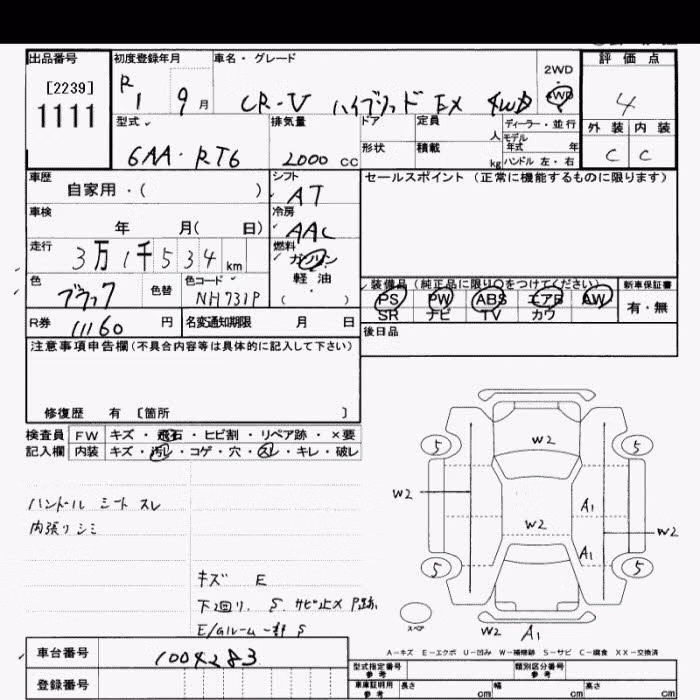 出品番号
[2239]
1111
初度登録年月
R1 9月
車名・グレード
CR-V ハイブリッド EX 4WD
2WD
4WD
評価点
4
外装 内装
C C
型式
6AA・RT6
排気量
2000 cc
ドア
形状
定員
人
積載
kg
ディーラー・並行
モデル年式 年
ハンドル 左・右
車歴
自家用・( )
シフト
AT
車検
年 月( 日)
冷房
AAC
走行
3万1千534 km
燃料
ガソリン
軽油
・
( )
色
ブラック
色替
色コード
NH731P
R券
11160 円
名変通知期限 月 日
セールスポイント (正常に機能するものに限ります)
装備品(純正品に限り○をつけてください)
PS PW ABS エアB AW
SR ナビ TV カワ
新車保証書
有・無
後日品
注意事項申告欄(不具合内容等は具体的に記入して下さい)
修復歴 有 [箇所 ]
検査員 FW キズ・飛石・ヒビ割・リペア跡・×要
記入欄 内装 キズ・汚れ・コゲ・穴・スレ・キレ・破レ
ハンドル シート スレ
内張リ シミ
キズ E
下回り. S. サビ止メ P跡
E/Gルーム一部 S
W2
5 5
W2
A1
W2
W2
A1
5 5
スペア
W2 A1
A-キズ E-エクボ U-凹み W-補修跡 S-サビ C-腐食 XX-交換済
車台番号
1004283
登録番号
型式指定番号
参考
類別区分番号
参考
車庫証明用
参考
長さ cm
幅 cm
高さ cm